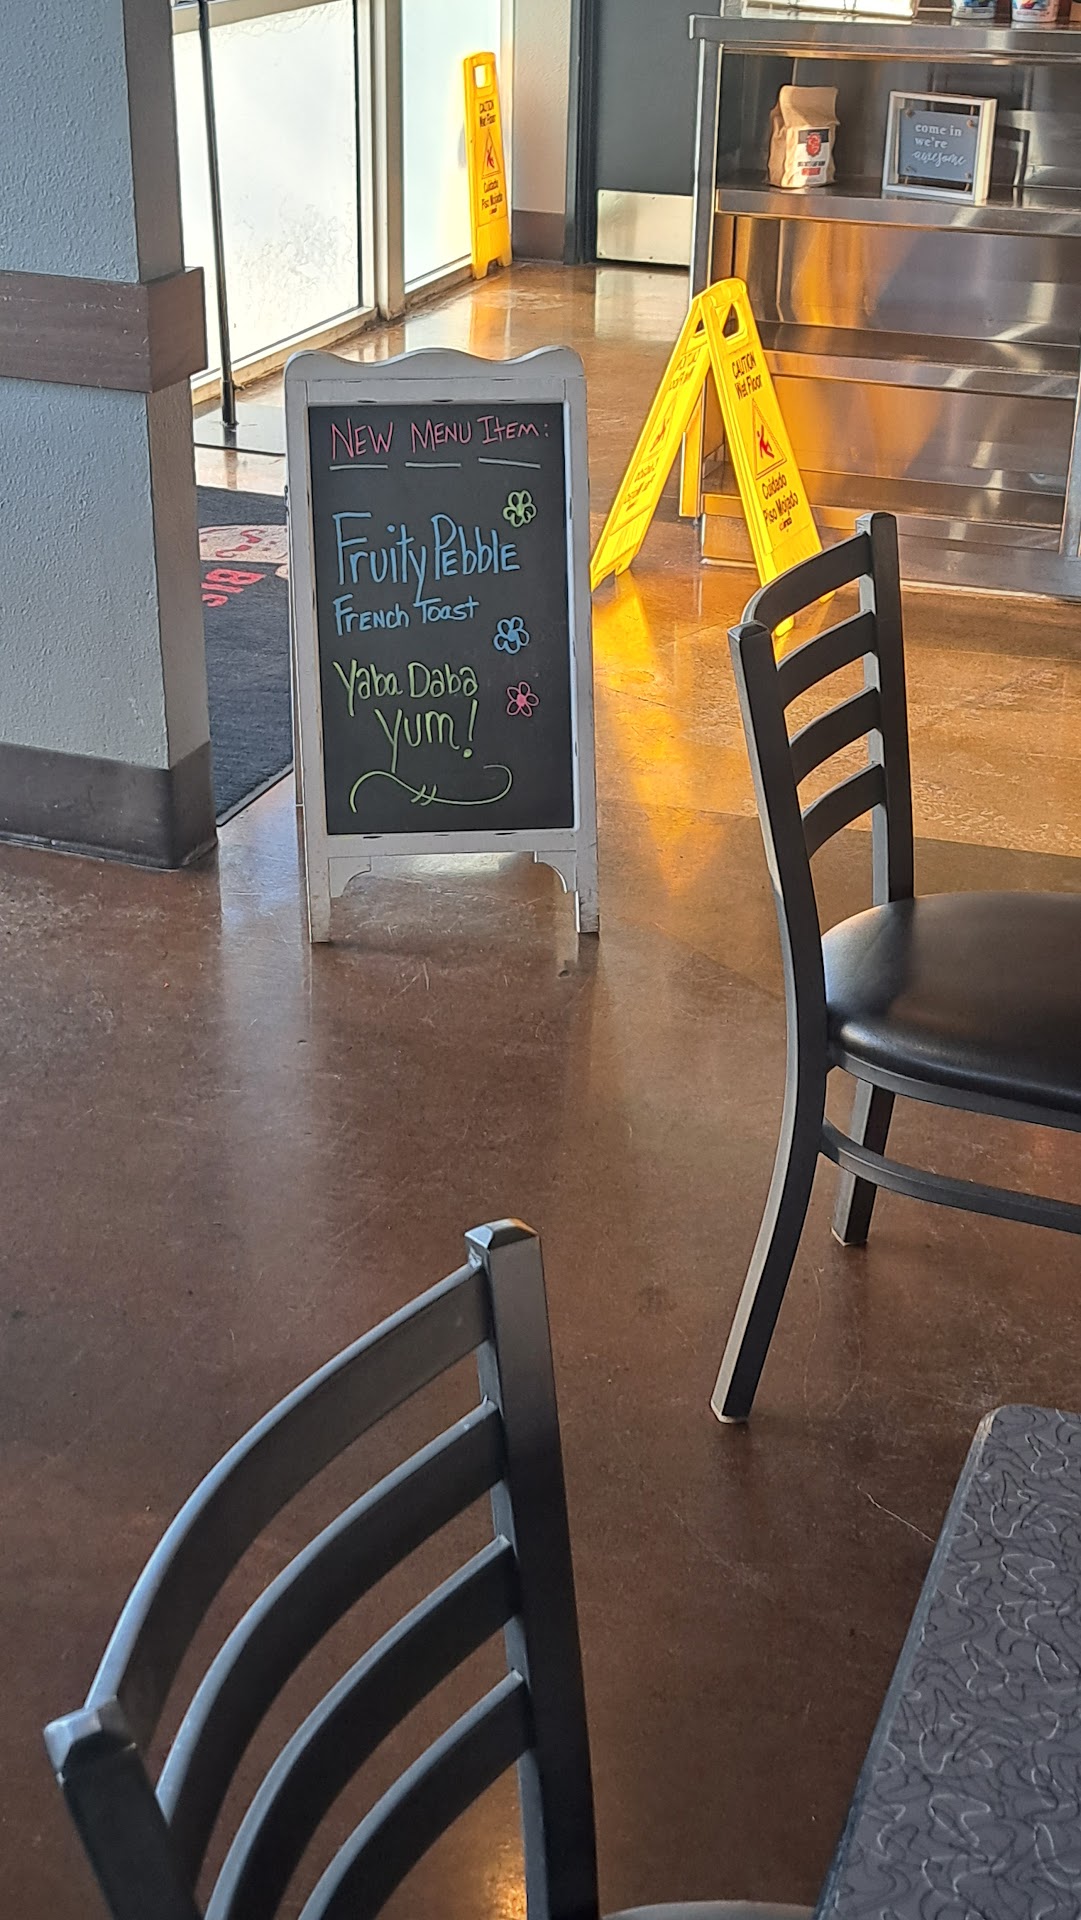 CAUTION
Wet Floor
Cuidado
Piso Mojado
come in
we're
awesome
CAUTION
Wet Floor
Cuidado
Piso Mojado
NEW MENU ITEM:
Fruity Pebble
FRENCH TOAST
Yaba Daba
Yum!
BIG